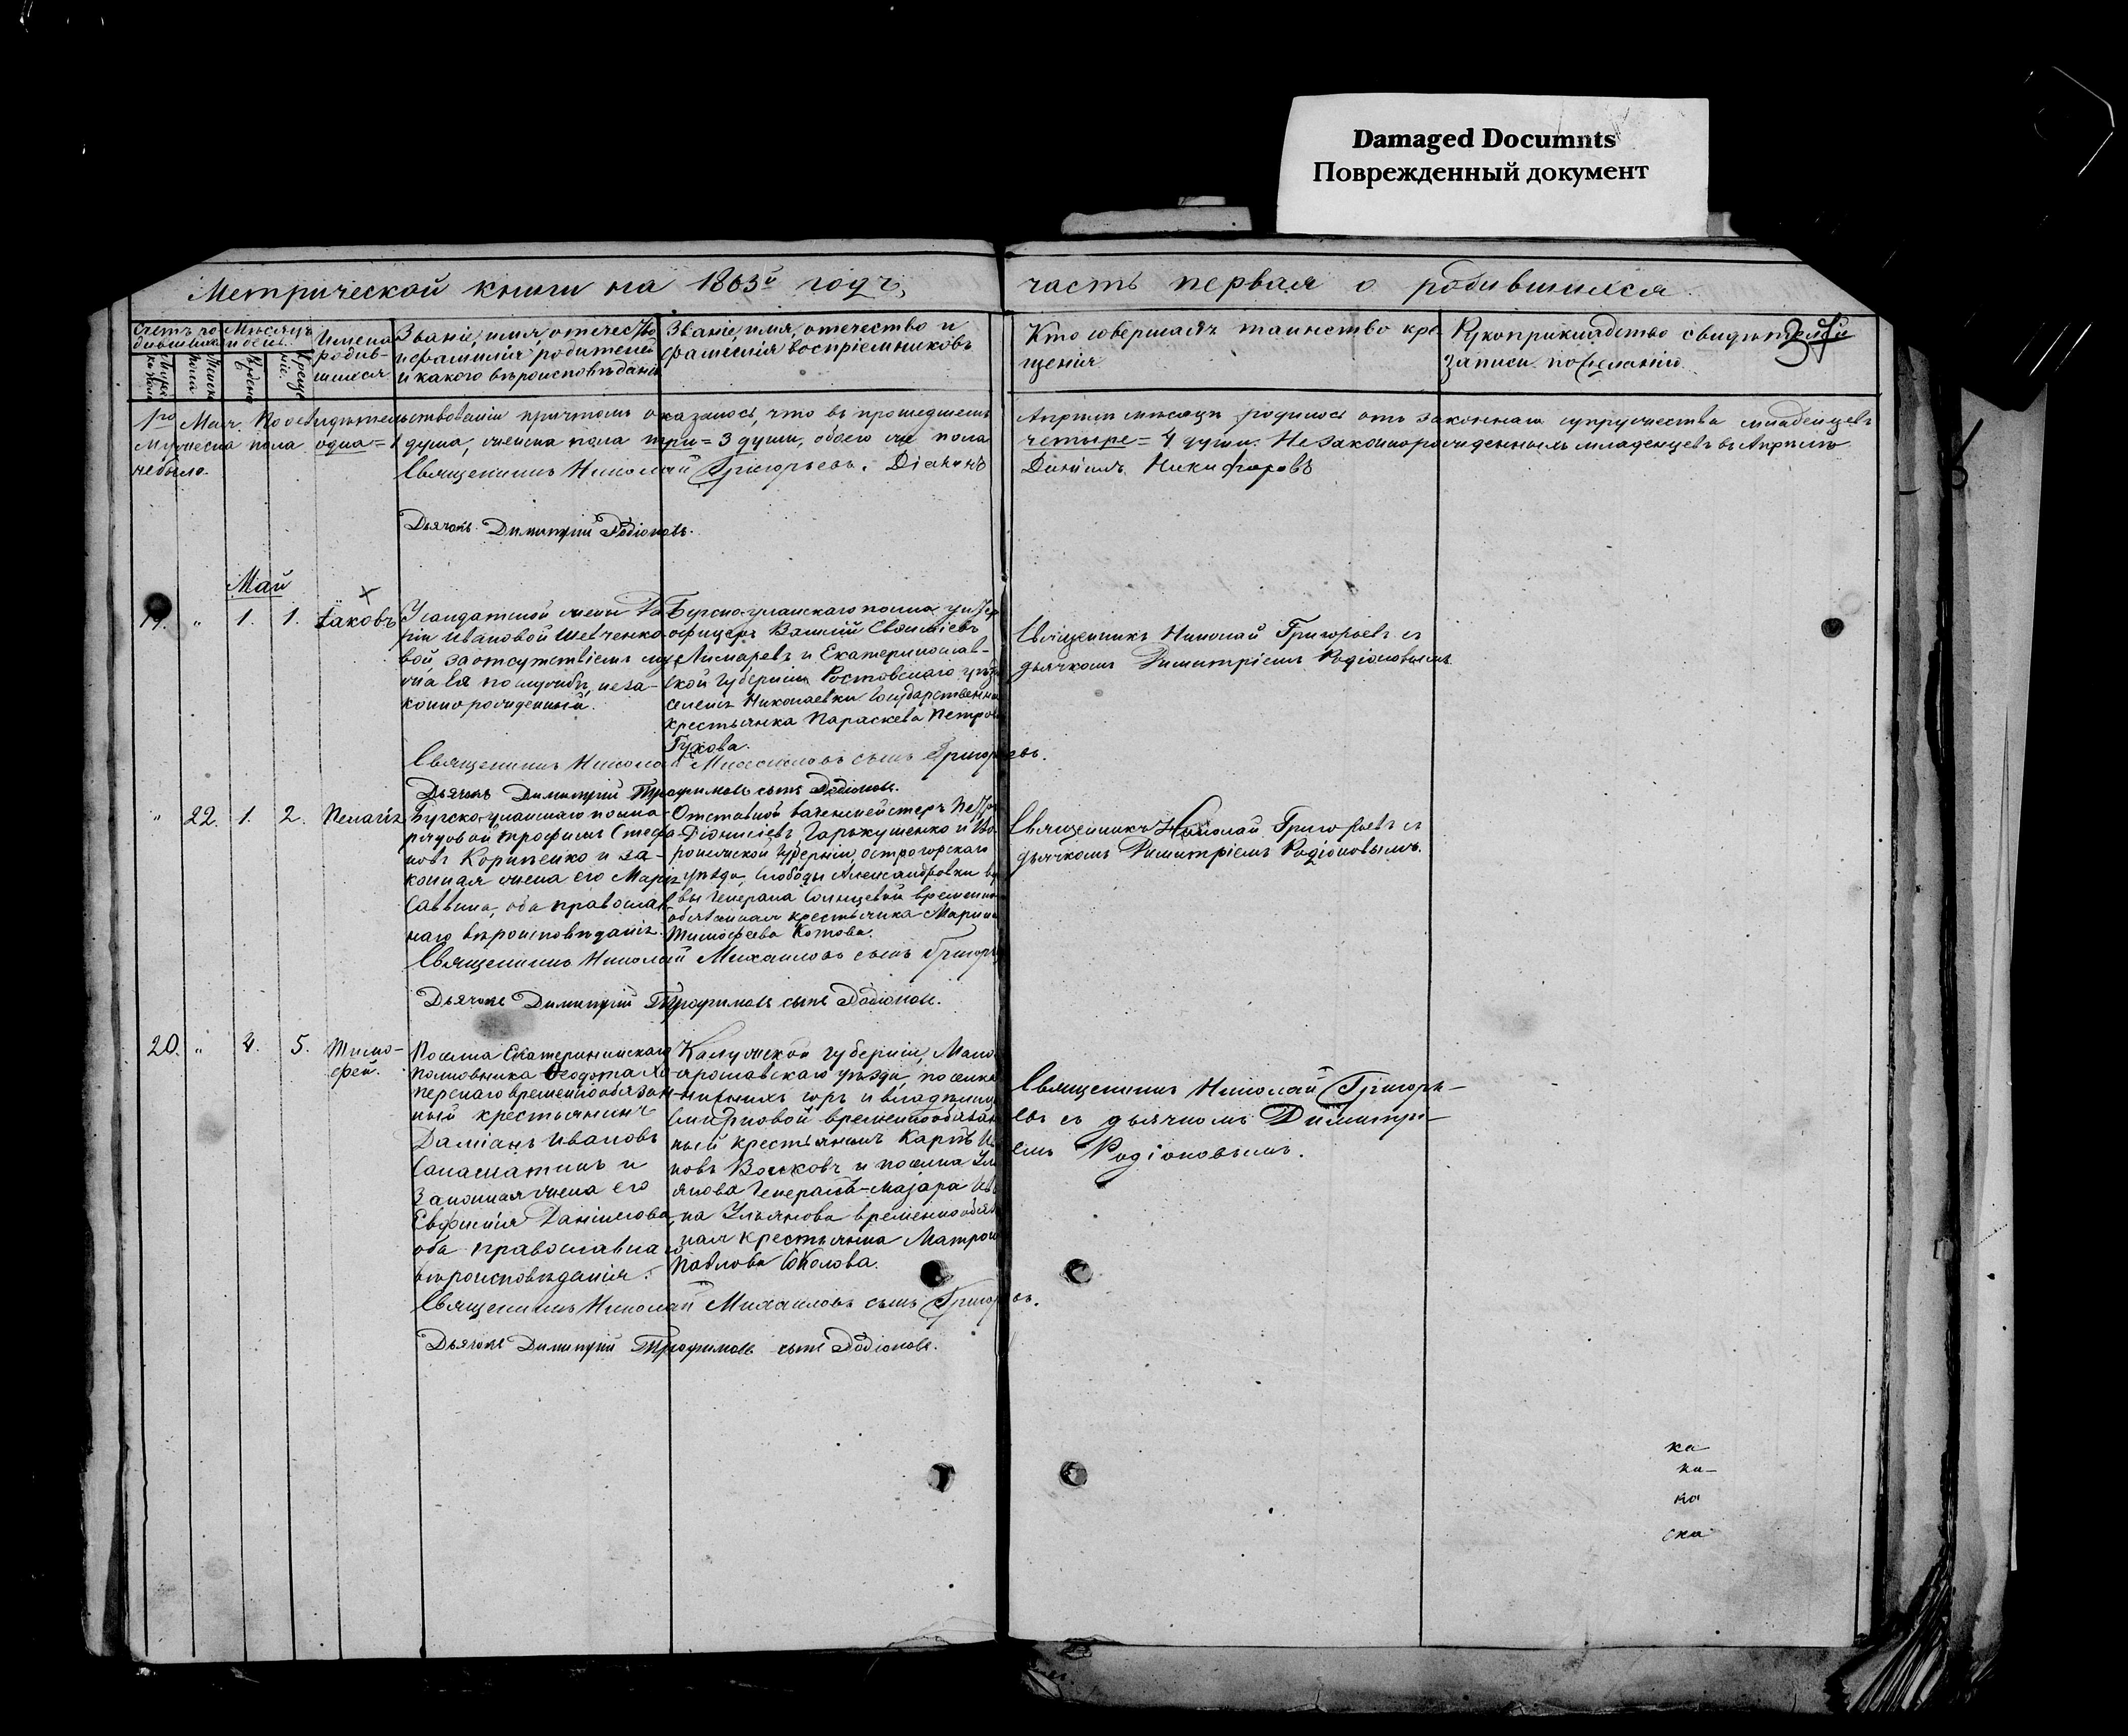 Damaged Documnts
Поврежденный документ
Метрической книги на 1863й годъ,
часть первая о родившихся
Счетъ родившихся
Мѣсяцъ и день
Имена родившихся
Званіе, имя, отечество
и фамилія родителей
и какого вѣроисповѣданія
Званіе, имя, отечество и
фамилія воспріемниковъ
Кто совершалъ таинство кре-
щенія
Рукоприкладство свидѣтелей
записи по желанію.
1го Мая. По освидѣтельствованіи причтомъ оказалось, что въ прошедшемъ
Апрѣлѣ мѣсяцѣ родилось отъ законнаго супружества младенцевъ
мужеска пола одна = 1 душа, женска пола три = 3 души, обоего же пола
четыре = 4 души. Незаконнорожденныхъ младенцевъ въ Апрѣлѣ
небыло.
Священникъ Николай Григорьевъ. Діаконъ
Даніилъ Никифоровъ
Дьячокъ Димитрій Родіоновъ.
Май
19. " 1. 1. Іаковъ
У солдатской жены
ріи Ивановой Шевченко-
вой, за отсутствіемъ му-
жа ея по службѣ, неза-
коннорожденный.
Бугско-уланскаго полка унтеръ
офицеръ Василій
и Екатеринослав-
ской губерніи Ростовскаго уѣзда
селенія Николаевки Государственная
крестьянка Параскева Петрова
Гукова.
Священникъ Николай Григорьевъ съ
дьячкомъ Димитріемъ Родіоновымъ
Священникъ Николай Михаиловъ сынъ Григорьевъ.
Дьячокъ Димитрій Трофимовъ сынъ Родіоновъ.
" 22. 1. 2. Пелагія
Бугско-уланскаго полка
рядовой Трофимъ Стефа-
новъ Корниенко и за-
конная жена его Марія
Саввина, оба православ-
наго вѣроисповѣданія.
Отставной вахмистеръ
Діонисіевъ Гарькушенко и Во-
ронежской губерніи, Острогорскаго
уѣзда, слободы Александровки
вы Генерала временно
обязанная крестьянка Марина
Тимофеева Котова.
Священникъ Николай Григорьевъ съ
дьячкомъ Димитріемъ Родіоновымъ.
Священникъ Николай Михаиловъ сынъ Григорь
Дьячокъ Димитрій Трофимовъ сынъ Родіоновъ.
20. " 4. 5. Тимо-
фей.
Поселка Екатерининскаго
полковника Ѳеодота Хо-
перскаго временнообязан-
ный крестьянинъ
Даміанъ Ивановъ
и
законная жена его
Евфимія Даніилова
оба православнаго
вѣроисповѣданія.
Калужской губерніи, Мало-
ярославскаго уѣзда, поселка
горъ и владѣлицы
Смирновой временнообязан
ный крестьянинъ Карпъ
новъ Волковъ и поселка Уль
янова Генералъ-маіора Ива
на Ульянова временнообяз
ная крестьянка Матрона
Павлова Соколова.
Священникъ Николай Григорь-
евъ съ дьячкомъ Димитрі-
емъ Родіоновымъ.
Священникъ Николай Михаиловъ сынъ Григорьевъ.
Дьячокъ Димитрій Трофимовъ сынъ Родіоновъ.
ка
ка-
ка
ска